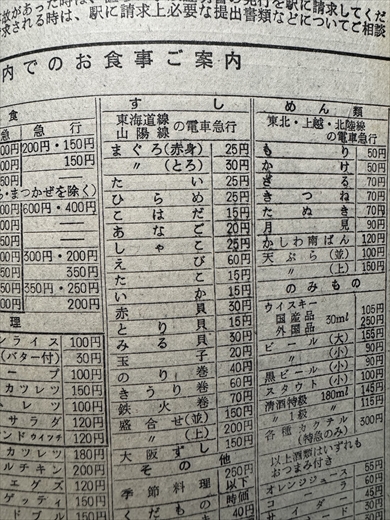 故があった時は、
の発行を駅に請求してくだ
求される時は、駅に請求上必要な提出書類などについてご相談
内でのお食事ご案内
食
急 急行
200円・150円
150円
・まつかぜを除く)
600円・400円
300円・200円
350円
350円・250円
200円
理
ンライス 100円
(バター付) 30円
ープ 100円
カツレツ 150円
サラダ 120円
ンドウィッチ 120円
カツレツ 180円
ルチキン 200円
エグズ 120円
ゲッティ 150円
ドブル 150円
すし
東海道線
山陽線 の電車急行
まぐろ(赤身) 25円
〃(とろ) 30円
たい 25円
ひらめ 25円
こはだ 15円
あなご 20円
しゃこ 25円
えび 60円
たこ 15円
いか 15円
赤貝 30円
とり貝 15円
みる貝 30円
玉子 20円
のり巻 40円
きうり巻 60円
鉄火巻 70円
盛合せ(並) 150円
〃(上) 200円
大阪ずし 150円
その他
季節料理 260円以下
くだもの 時価
めん類
東北・上越・北陸線
の電車急行
もり 50円
かけ 50円
ざる 70円
きつね 70円
たぬき 70円
月見 90円
かしわ南ばん 120円
天ぷら(並) 100円
〃(上) 150円
のみもの
ウイスキー
国産品 30ml 105円
外国品 250円
ビール(大) 155円
〃(小) 90円
黒ビール(小)
スタウト(小) 145円
清酒特級 180ml
〃1級 〃 115円
各種カクテル
(特急のみ) 300円
以上酒類はいずれも
おつまみ付き
オレンジジュース
コーラ
サイダ